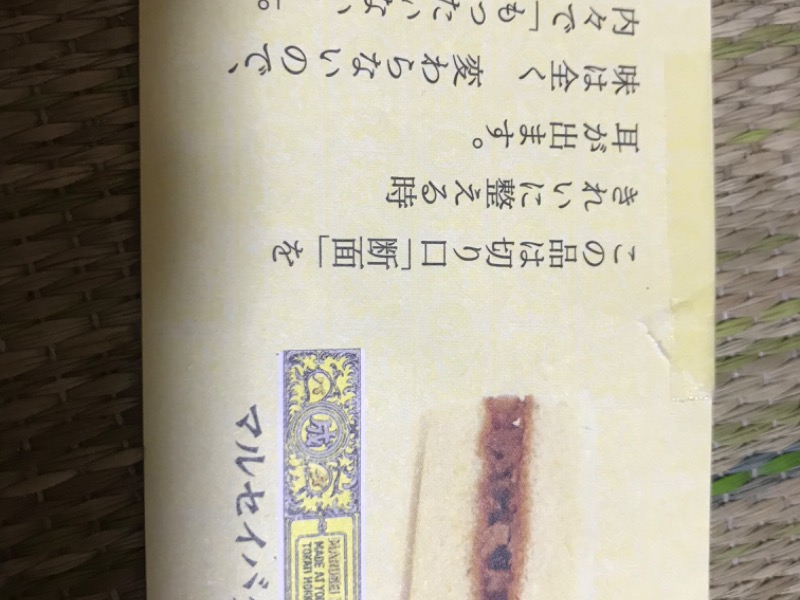 この品は切り口「断面」を
きれいに整える時
耳が出ます。
味は全く変わらないので、
内々で「もったいない」。
マルセイバ
成
MARUSEI
MADE AT TO
TOKATI HOKK